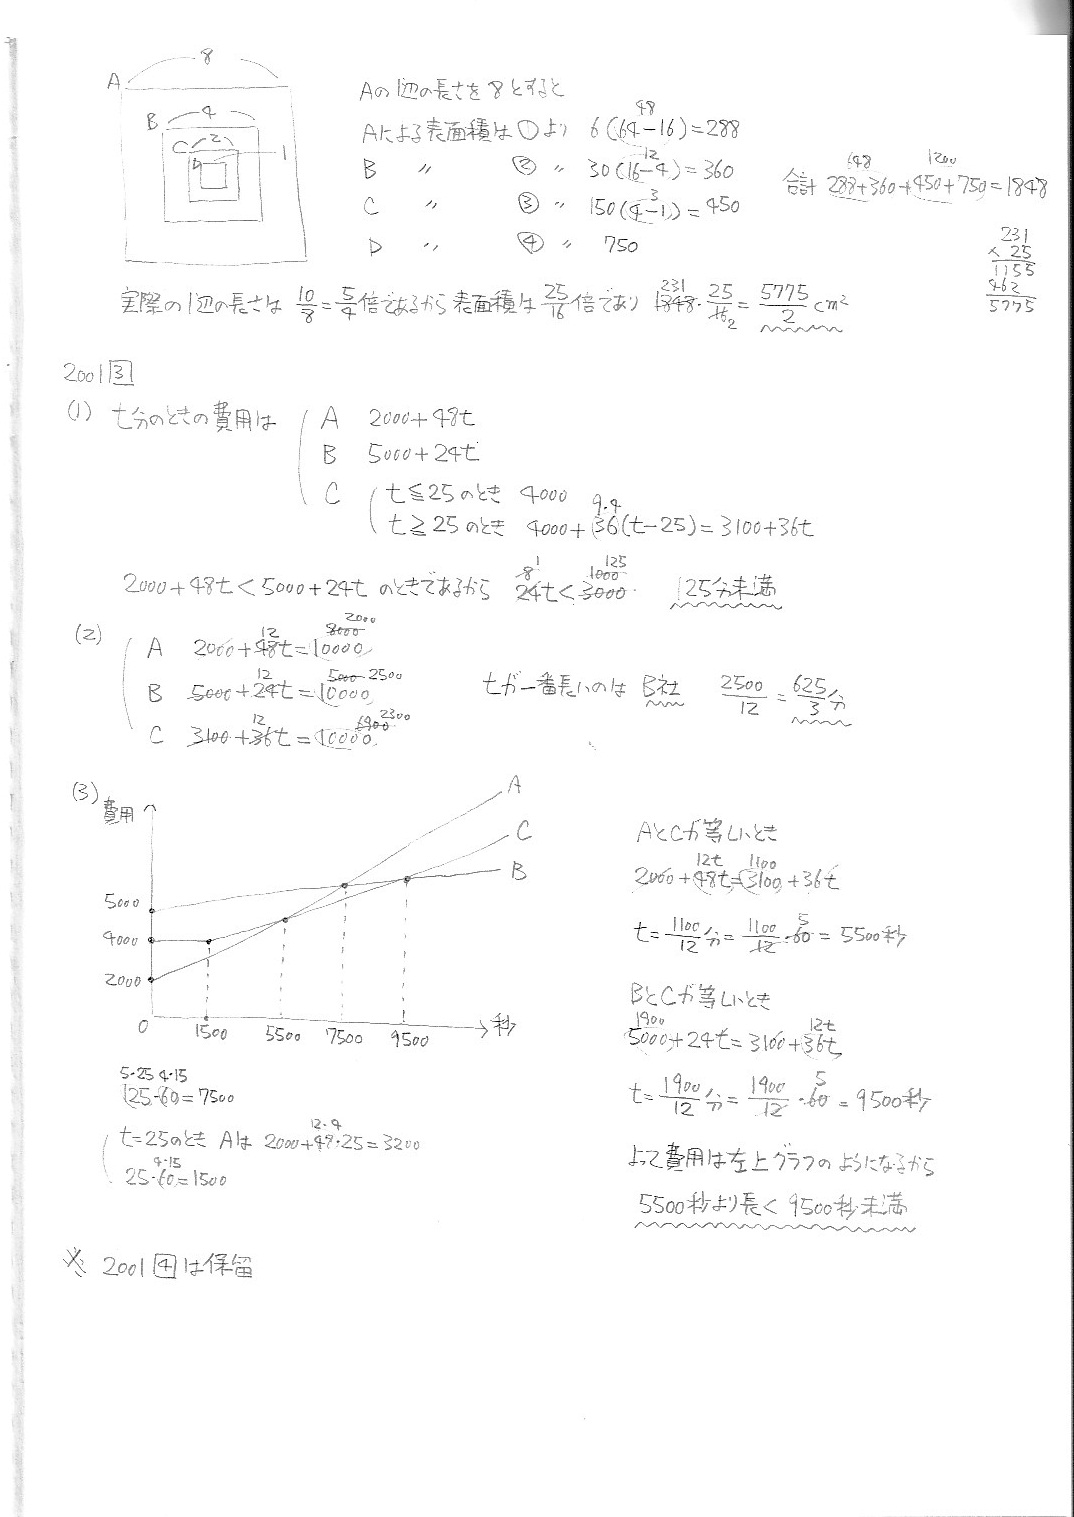 8
A
Aの1辺の長さを8とすると
B 4
48
Aによる表面積は①より 6(64-16)=288
C 2
D 1
12
B 〃 ② 〃 30(16-4)=360
648 1200
合計 288+360+450+750=1848
3
C 〃 ③ 〃 150(4-1)=450
D 〃 ④ 〃 750
231
×25
1155
462
5775
231
実際の1辺の長さは 10/8=5/4倍であるから表面積は25/16倍であり 1848・25/16 2=5775/2cm²
2001 3
(1) t分のときの費用は
A 2000+48t
B 5000+24t
C t≦25のとき 4000
9・4
t≧25のとき 4000+36(t-25)=3100+36t
8 1 1000 125
2000+48t<5000+24t のときであるから 24t<3000 125分未満
(2)
12 8000 2000
A 2000+48t=10000
12 5000 2500
B 5000+24t=10000
tが一番長いのは B社 2500/12=625/3分
12 6900 2300
C 3100+36t=10000
(3)
費用
A
C
B
5000
4000
2000
0 1500 5500 7500 9500 秒
5・25 4・15
125・60=7500
12・4
t=25のとき Aは 2000+48・25=3200
4・15
25・60=1500
AとCが等しいとき
12t 1100
2000+48t=3100+36t
5
t=1100/12分=1100/12・60=5500秒
BとCが等しいとき
1900 12t
5000+24t=3100+36t
5
t=1900/12分=1900/12・60=9500秒
よって費用は左上グラフのようになるから
5500秒より長く 9500秒未満
※ 2001 4 は保留